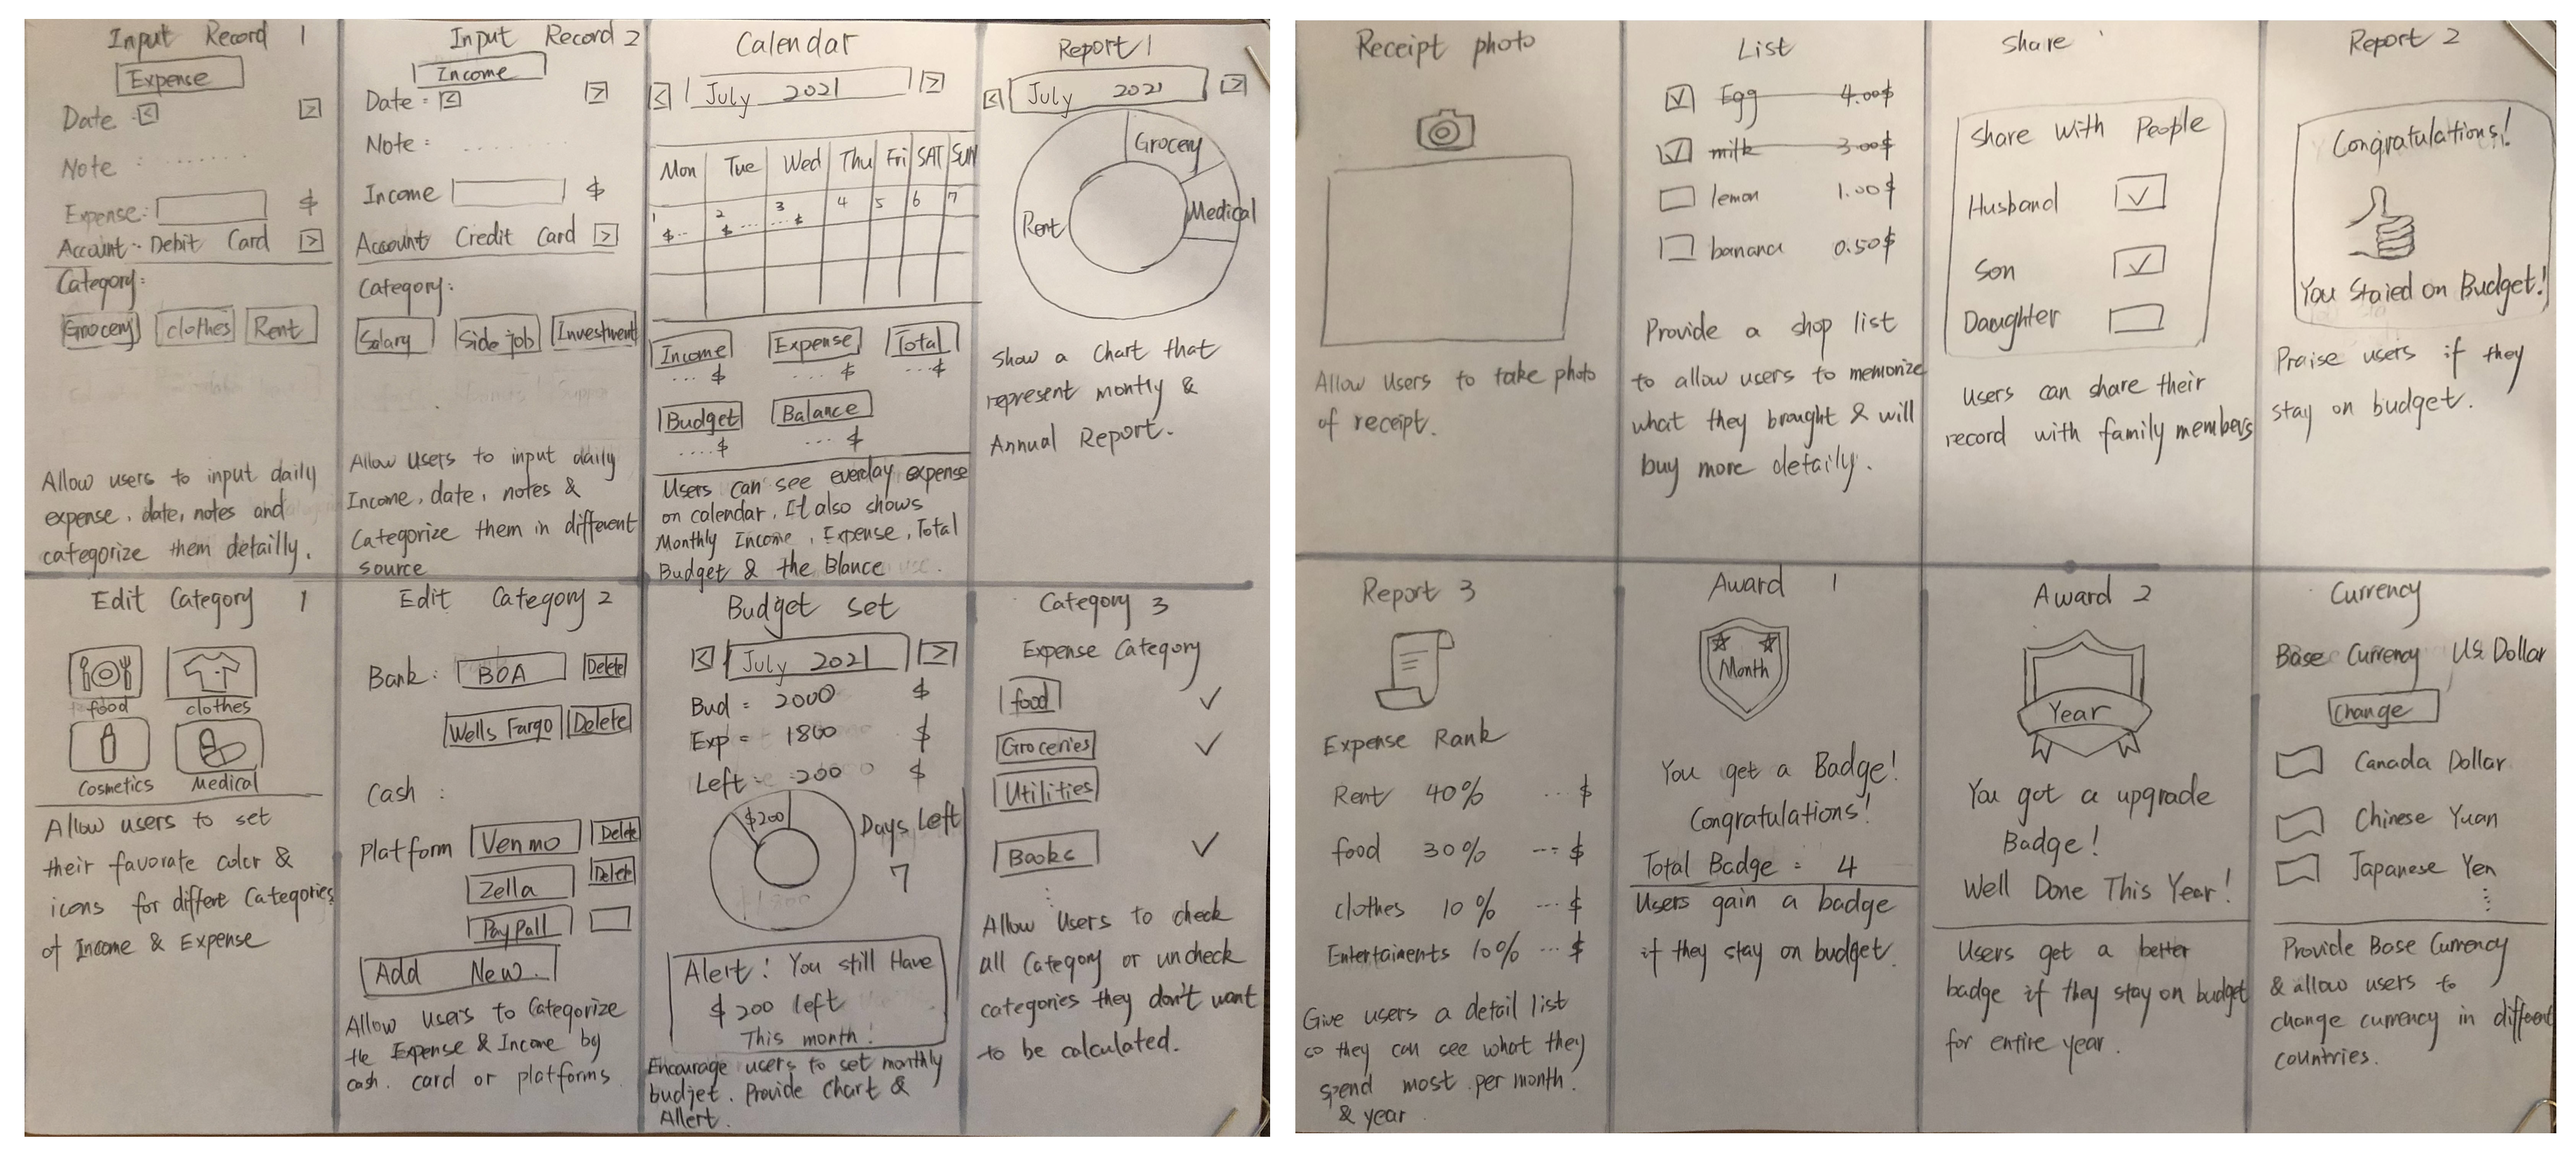 Input Record 1
Expense
Date : <
>
Note : .......
Expense: $
Account: Debit Card >
Category:
Grocery clothes Rent
Allow users to input daily
expense, date, notes and
categorize them detailly.
Input Record 2
Income
Date : <
>
Note :
Income $
Account Credit Card >
Category:
Salary Side job Investment
Allow Users to input daily
Income, date, notes &
Categorize them in different
source
Calendar
< July 2021 >
Mon Tue Wed Thu Fri SAT SUN
1 2 3 4 5 6 7
$.. $ ... ...$
Income Expense Total
... $ ... $ ...$
Budget Balance
....$ ... $
Users can see everday expense
on calendar. It also shows
Monthly Income, Expense, Total
Budget & the Blance
Report 1
< July 2021 >
Grocery
Medical
Rent
show a chart that
represent montly &
Annual Report.
Edit Category 1
food clothes
Cosmetics Medical
Allow users to set
their favorate color &
icons for differet Categories
of Income & Expense
Edit Category 2
Bank: BOA Delete
Wells Fargo Delete
Cash :
Platform Venmo Delete
Zella Delete
PayPall
Add New.
Allow users to Categorize
the Expense & Income by
cash. card or platforms.
Budget set
< July 2021 >
Bud = 2000 $
Exp = 1800 $
Left = 200 $
$200
Days Left
7
Alert! You still Have
$ 200 left
This month!
Encourage users to set monthly
budjet. Provide Chart &
Allert.
Category 3
Expense Category
food ✓
Groceries ✓
Utilities
Books ✓
Allow Users to check
all Category or uncheck
categories they don't want
to be calculated.
Receipt photo
Allow Users to take photo
of receipt.
List
Egg 4.00$
milk 3.00$
lemon 1.00$
banana 0.50$
Provide a shop list
to allow users to memorize
what they brought & will
buy more detaily.
Share
Share with People
Husband ✓
Son ✓
Daughter
Users can share their
record with family members
Report 2
Congratulations!
You Staied on Budget!
Praise users if they
stay on budget.
Report 3
Expense Rank
Rent 40% ... $
food 30% --- $
clothes 10% ... $
Entertaiments 10% ... $
Give users a detail list
so they can see what they
spend most per month.
& year
Award 1
Month
You get a Badge!
Congratulations!
Total Badge = 4
Users gain a badge
if they stay on budget.
Award 2
Year
You got a upgrade
Badge!
Well Done This Year!
Users get a better
badge if they stay on budget
for entire year.
Currency
Base Currency US Dollar
Change
Canada Dollar
Chinese Yuan
Japanese Yen
Provide Base Currency
& allow users to
change currency in different
countries.